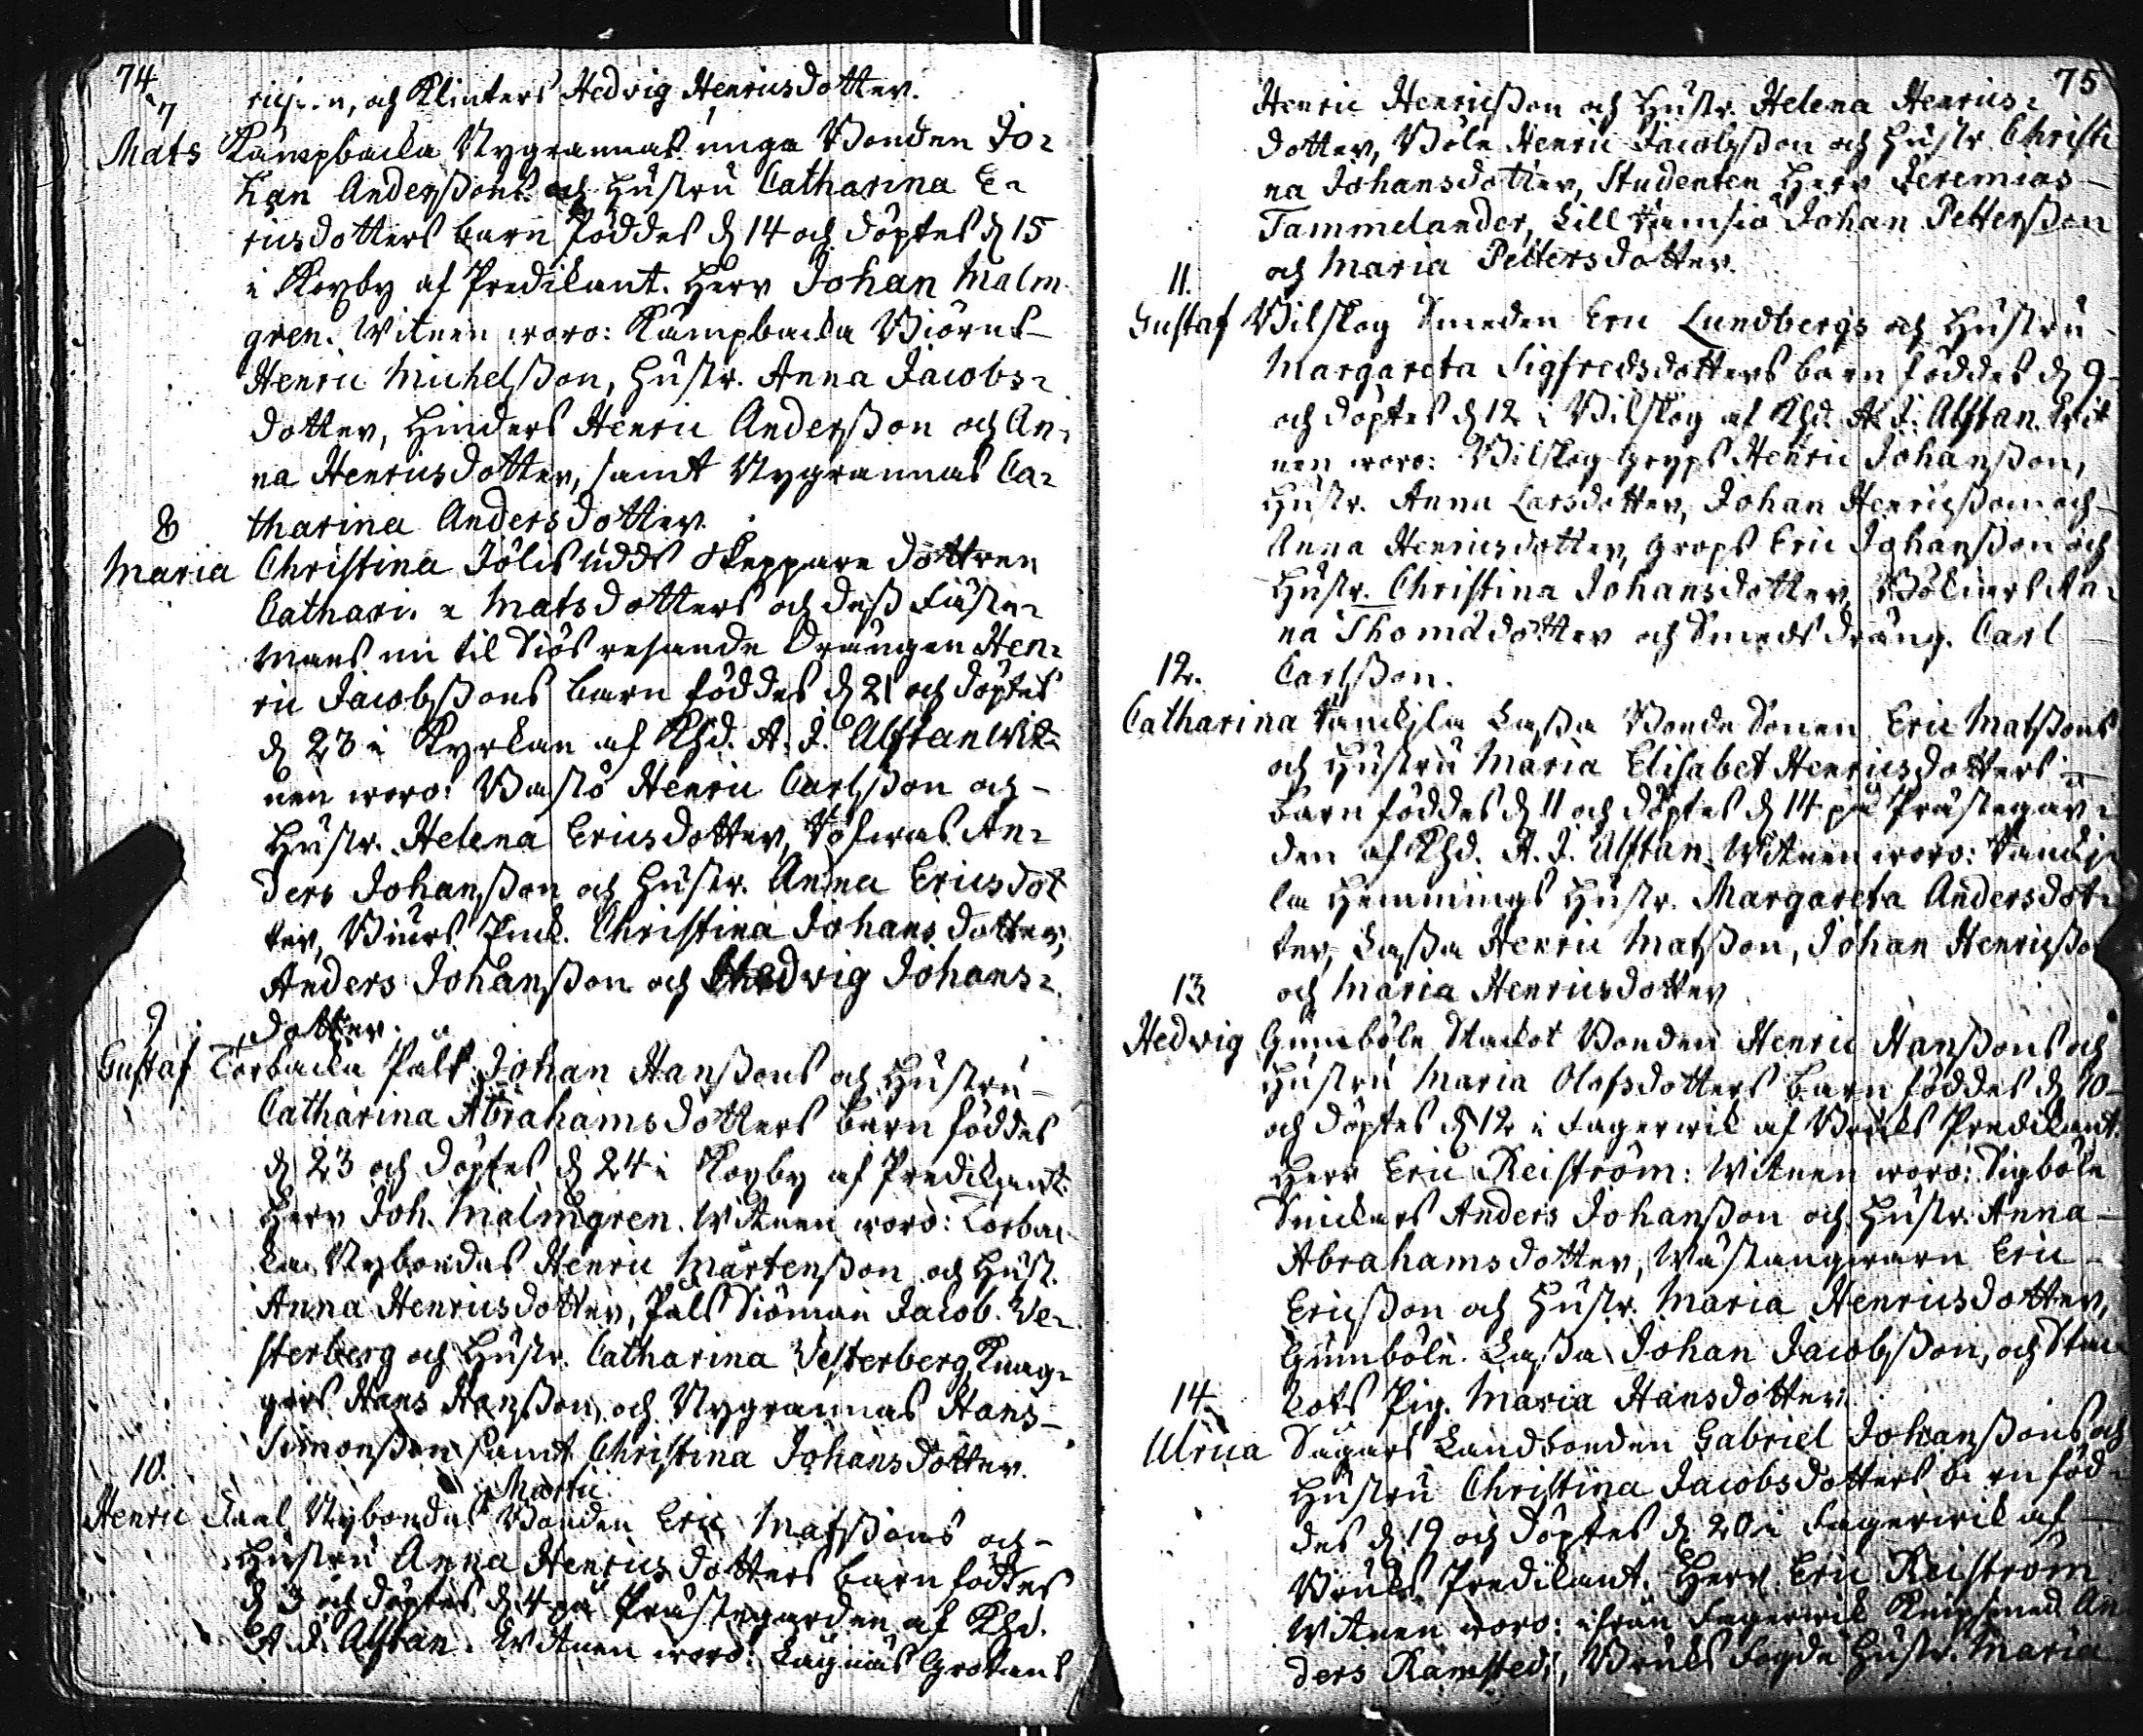 74
7
och Klinkers Hedvig Henricsdotter.
Mats Kämpbacka Nygrannas unga Bonden Jo=
han Anderssons och Hustru Catharina E=
ricsdotters barn föddes d 14 och döptes d 15
i Kyrby af Predikant. Herr Johan Malm
gren. Witnen woro: Kämpbacka Biörns
Henric Michelsson, Hustr. Anna Jacobs=
dotter, Hinders Henric Andersson och An=
na Henricsdotter, samt Nygrannas Ca=
8
tharina Andersdotter.
Maria Christina Skeppare dottren
Matsdotters och dess Fäste=
mans nu til Siös resande Drängen Hen=
ric Jacobssons barn föddes d 21 och döptes
d 23 i Kyrkan af Khd. A. J. Alftan Wit=
nen woro: Bastö Henric Carlsson och
Hustr. Helena Ericsdotter, An=
ders Johansson och Hustr. Anna Ericsdot
ter, Christina Johansdotter,
Anders Johansson och Hedvig Johans=
9
dotter.
Gustaf Torbacka Påls Johan Hanssons och Hustru
Catharina Abrahamsdotters barn föddes
d 23 och döptes d 24 i Kyrby af Predikant
Herr Joh. Malmgren. Witnen woro: Torbac
ka Nybondas Henric Mårtensson och Hust.
Anna Henricsdotter, Påls Siöman Jacob We=
sterberg och Hustr. Catharina Vesterberg, Knag=
gars Hans Hansson, och Nygrannas Hans
Simonsson samt Christina Johansdotter.
10.
Martii
Henric Nybondas Bonden Eric Matssons och
Hustru Anna Henricsdotters barn föddes
d 3 och döptes d 4 på Prästegården af Khd.
A. J. Alftan. Witnen woro:
75
Henric Henricsson och Hustr. Helena Henrics=
dotter, Böle Henric Jacobsson och Hustr. Christi
na Johansdotter, Studenten Herr Jeremias
Tammelander, Lill Johan Pettersson
och Maria Pettersdotter.
11.
Gustaf Bilskog Smeden Eric Lundbergs och Hustru
Margareta Sigfredsdotters barn föddes d 9
och döptes d 12 i Bilskog af Khd. A. J. Alftan. Wit
nen woro: Bilskog Henric Johansson,
Hustr. Anna Larsdotter, Johan Henricsson och
Anna Henricsdotter, Eric Johansson och
Hustr. Christina Johansdotter, An=
na Thomadotter och Smedsdräng. Carl
12.
Carlsson.
Catharina Lassa Bonde Sonen Eric Matssons
och Hustru Maria Elisabet Henricsdotters
barn föddes d 11 och döptes d 14 på Prästegår=
den af Khd. A. J. Alftan. Witnen woro:
Hemmings Hustr. Margareta Andersdot=
ter, Lassa Henric Matsson, Johan Henricsso
13
och Maria Henricsdotter
Hedvig Gumböle Stackot Bonden Henric Hanssons och
Hustru Maria Olofsdotters barn föddes d 10
och döptes d 12 i Fagerwik af Bruks Predikant.
Herr Eric Reiström: Witnen woro: Sigböle
Snickars Anders Johansson och Hustr. Anna
Abrahamsdotter, Eric
Ericsson och Hustr. Maria Henricsdotter,
Gumböle. Lassa Johan Jacobsson, och Stac
14
kots Pig. Maria Hansdotter.
Ulrica Sågars Landbonden Gabriel Johanssons och
Hustru Christina Jacobsdotters barn föd=
des d 19 och döptes d 20 i Fagerwik af
Bruks Predikant. Herr Eric Reiström
Witnen woro: ifrån Fagerwik Knipsmed An
ders Ramstedt, Bruks Fogde Hustr. Maria